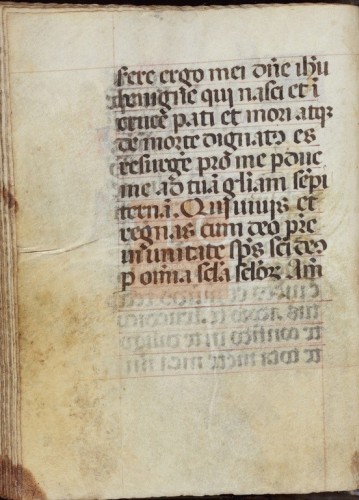 sere ergo mei dñe ihũ
benigñe qui nasci et ĩ
cruce pati et mori atqȝ
de morte dignatꝰ es
resurge pro me pduc
me ad tuã gliam sẽpi
ternã. Qui viuis et
regnas cum deo pr̃e
in unitate sp̃s sc̃i deo
p om̃a sc̃la sc̃loȝ Am̃